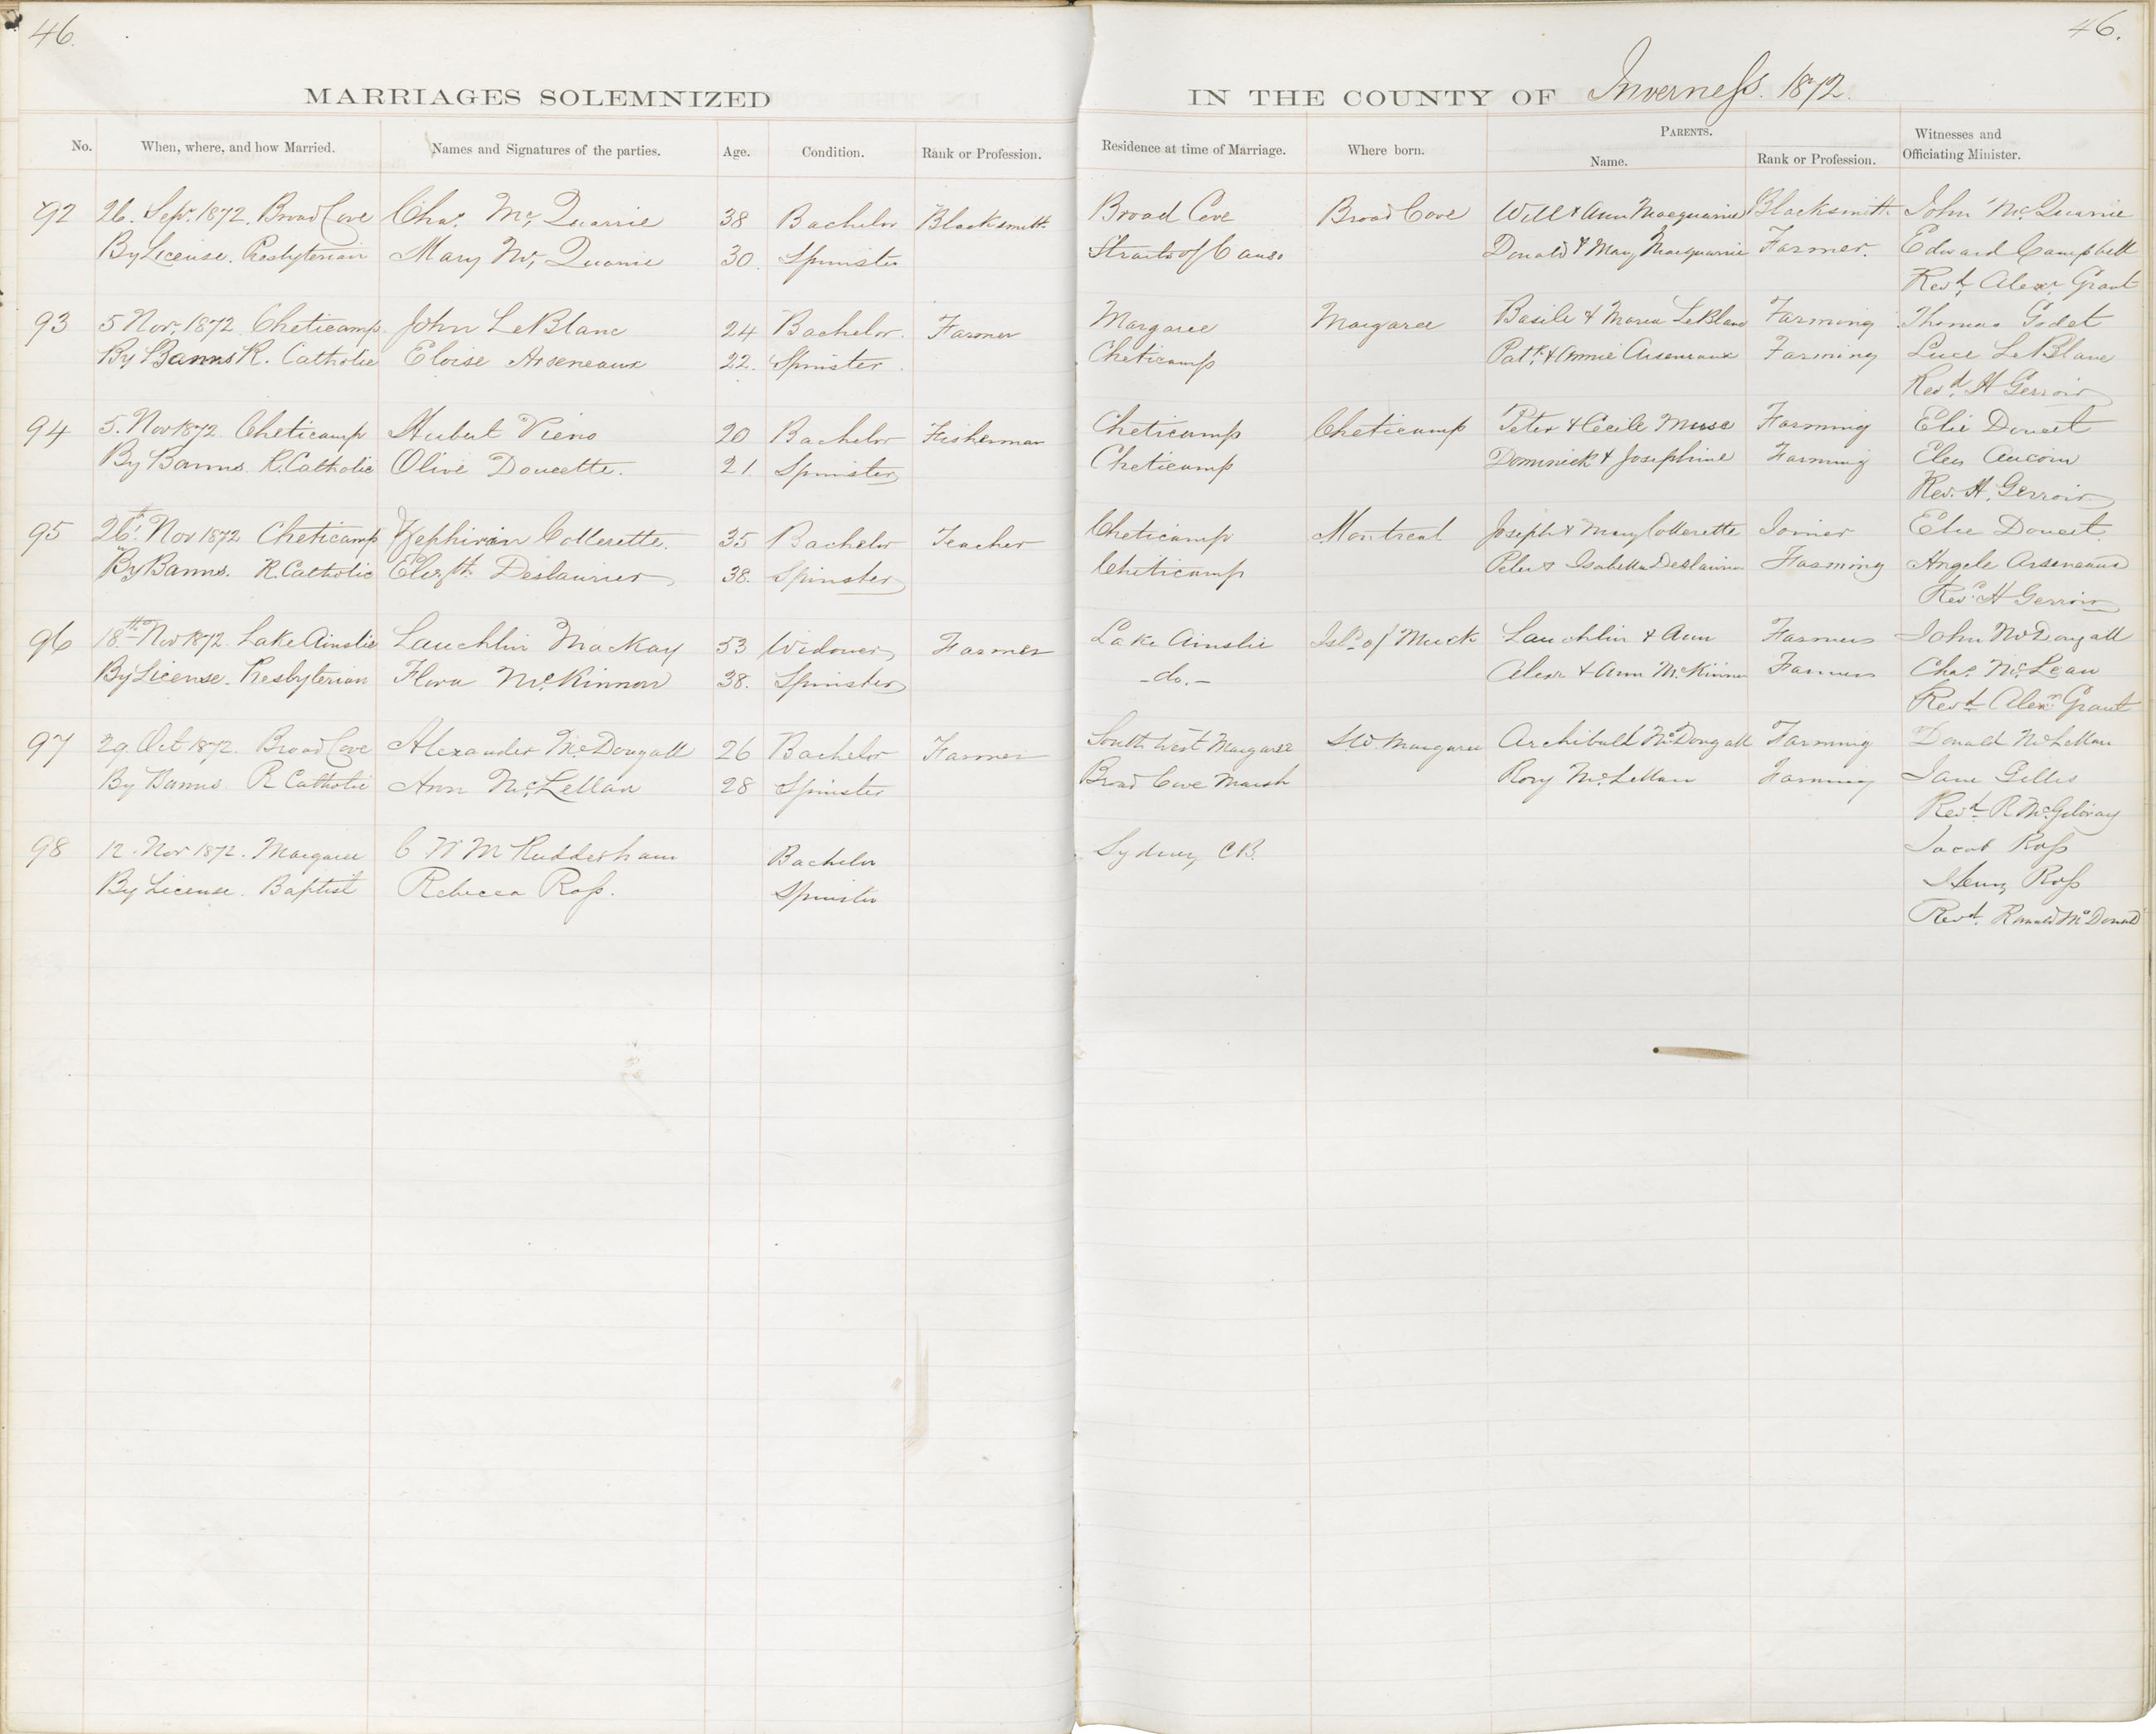 46. 46.
MARRIAGES SOLEMNIZED IN THE COUNTY OF Inverness. 1872.
No. When, where, and how Married. Names and Signatures of the parties. Age. Condition. Rank or Profession. Residence at time of Marriage. Where born. PARENTS. Name. Rank or Profession. Witnesses and Officiating Minister.
92 26. Sepr. 1872. Broad Cove Chas. Mc Quarrie 38 Bachelor Blacksmith Broad Cove Broad Cove Will & Ann Macquarrie Blacksmith John McQuarrie
By License. Presbyterian Mary Mc Quarrie 30. Spinster Straits of Canso Donald & Mary Macquarrie Farmer. Edward Campbell
Revd. Alexr. Grant
93 5 Nov. 1872 Cheticamp. John LeBlanc 24 Bachelor. Farmer Margaree Margaree Basile & Maria LeBlanc Farming Thomas Godet
By Banns R. Catholic Eloise Arseneaux 22. Spinster. Cheticamp Patk. & Annie Arseneaux Farming Luce LeBlanc
Revd. H Gerroir
94 5. Nov 1872 Cheticamp Hubert 20 Bachelor Fisherman Cheticamp Cheticamp Peter & Cecile Muse Farming Elie Doucet
By Banns R. Catholic Olive Doucette. 21. Spinster Cheticamp Dominick & Josephine Farming Elen Aucoin
Rev. H. Gerroir
95 26th. Nov 1872 Cheticamp Zephirin Collerette. 35 Bachelor Teacher Cheticamp Montreal Joseph & Mary Collerette Joiner Elie Doucet
By Banns. R. Catholic Elizth. Deslaurier 38. Spinster Cheticamp Peter & Isabella Deslaurier Farming Angele Arseneaud
Revd. H Gerroir
96 18th Nov 1872. Lake Ainslie Lauchlin MacKay 53 Widower Farmer Lake Ainslie Isld of Muck Lauchlin & Ann Farmers John McDougall
By License. Presbyterian Flora McKinnon 38. Spinster -do.- Alexr & Ann McKinnon Farmers Chas. McLean
Revd Alexr Grant
97 29 Oct 1872. Broad Cove Alexander McDougall 26 Bachelor Farmer South West Margaree S W. Margaree Archibald McDougall Farming Donald McLellan
By Banns. R Catholic Ann McLellan 28 Spinster Broad Cove Marsh Rory McLellan Farming Jane Gillis
Revd R McGilvray
98 12. Nov 1872. Margaree C W M Ruddesham Bachelor Sydney CB. Jacob Ross
By License. Baptist Rebecca Ross. Spinster Henry Ross
Revd. Ronald McDonald